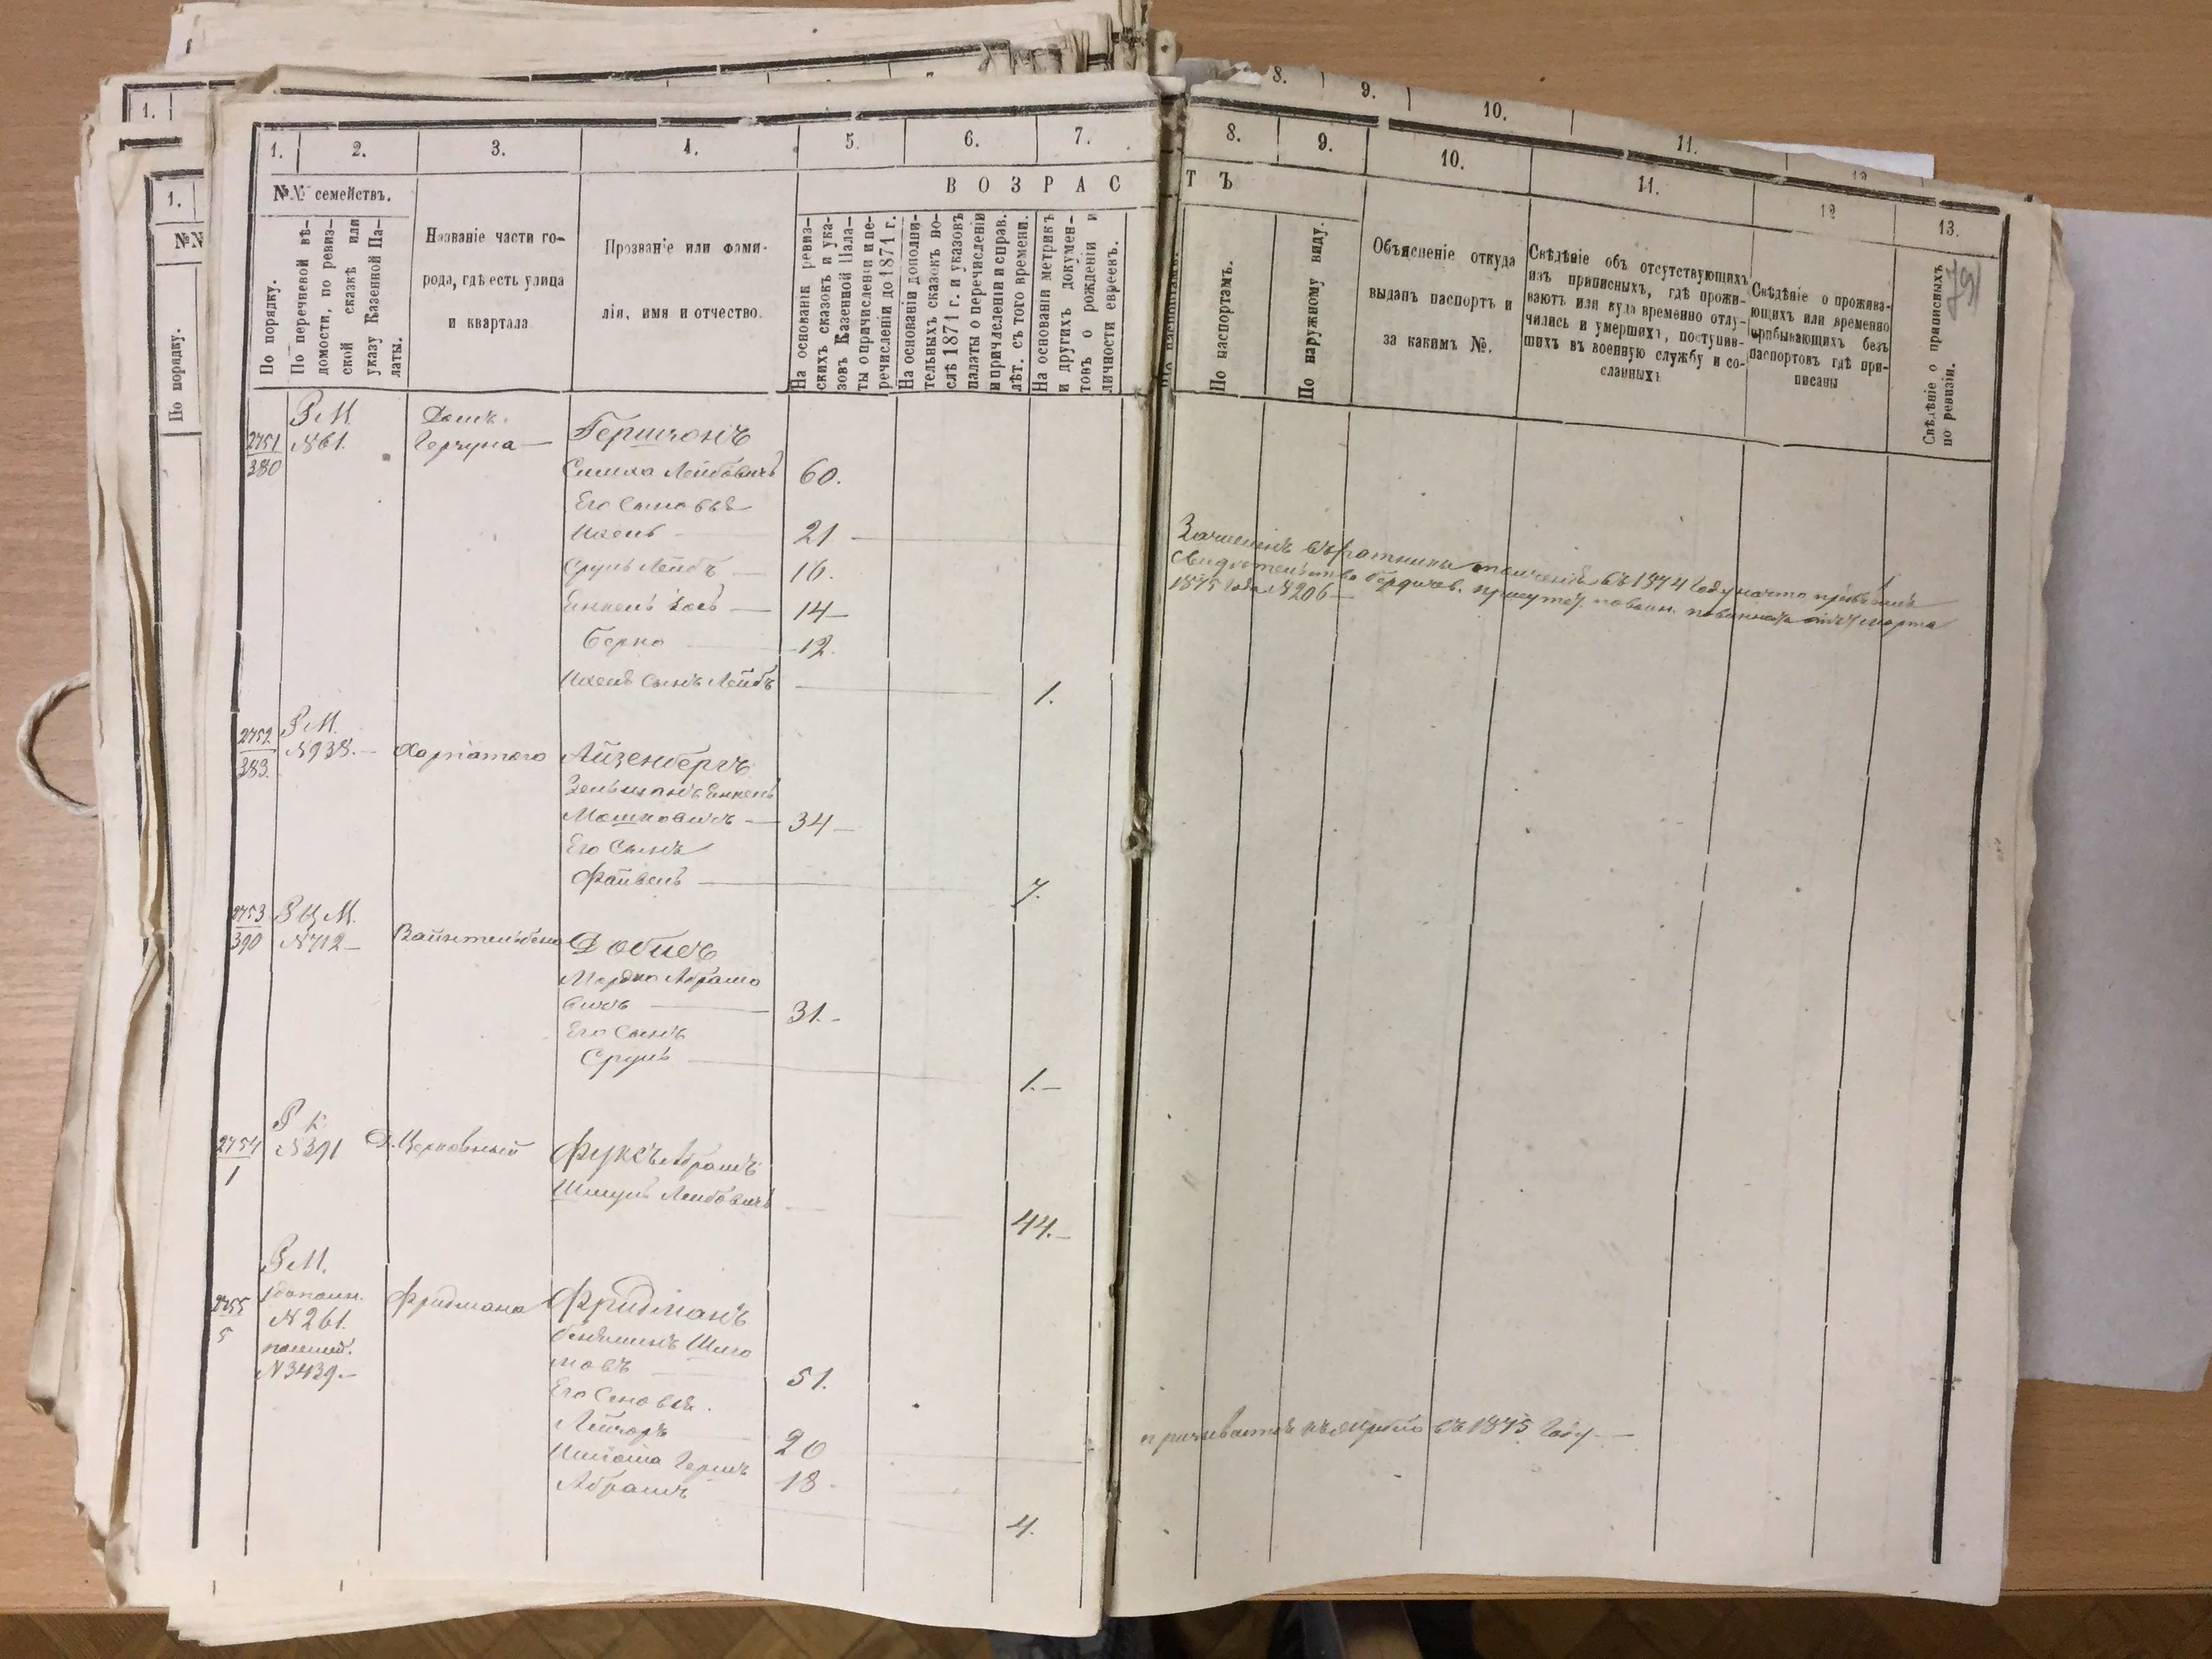 8. 9. 10. 11. 12
1.
1.
№№
По порядку.
1. 2. 3. 4. 5. 6. 7. 8. 9. 10. 11. 12 13.
№№ семействъ.
В О З Р А С Т Ъ
По порядку.
По перечневой вѣ-
домости, по ревиз-
ской сказкѣ или
указу Казенной Па-
латы.
Названіе части го-
рода, гдѣ есть улица
и квартала
Прозваніе или фами-
лія, имя и отчество.
На основаніи ревиз-
скихъ сказокъ и ука-
зовъ Казенной Пала-
ты о причисленіи и пе-
речисленіи до 1871 г.
На основаніи дополни-
тельныхъ сказокъ по-
слѣ 1871 г. и указовъ
палаты о перечисленіи
и причисленіи и справ.
лѣт. съ того времени.
На основаніи метрикъ
и другихъ докумен-
товъ о рожденіи и
личности евреевъ.
По паспортамъ.
По наружному виду.
Объясненіе откуда
выданъ паспортъ и
за какимъ №.
Свѣдѣніе объ отсутствующихъ
изъ приписныхъ, гдѣ прожи-
ваютъ или куда временно отлу-
чились и умершихъ, поступив-
шихъ въ военную службу и со-
сланныхъ
Свѣдѣніе о прожива-
ющихъ или временно
прибывающихъ безъ
паспортовъ гдѣ при-
писаны
Свѣдѣніе о приписныхъ
по ревизіи.
791
2751
380
Р М.
№61.
Домъ
Герчука
Гершонъ
Симха Лейбовичъ 60.
Его Сыновья
Ихель 21
Сруль Лейбъ 16.
Енкель Іосъ 14
Берко 12.
Ихеля Сынъ Лейбъ 1.
Зачисленъ въ ратники ополченія въ 1874 Году на что предъявилъ
Свидѣтельство Бердичев. присут. по воин. повинности отъ марта
1875 Года №206
2752
383.
Р М.
№938.
Харпатого
Айзенбергъ
Зельманъ Енкель
Мошковичъ 34
Его Сынъ
Файвель 7.
2753
390
Р Ц М.
№712
Вайнтельбена
Добисъ
Мордко Абрамо
вичъ 31.
Его Сынъ
Сруль 1.
2754
1
Р К
№391
Д. Церковный
Фуксъ Абрамъ
Шмуль Лейбовичъ 44.
2755
5
Р М.
дополн.
№261.
№3439.
Фридмана
Фридманъ
Беньяминъ Шло
мовъ 51.
Его Сыновья.
Лейзоръ 20
Гершъ 18
Абрамъ 4.
призывается къ жребію въ 1875 Году